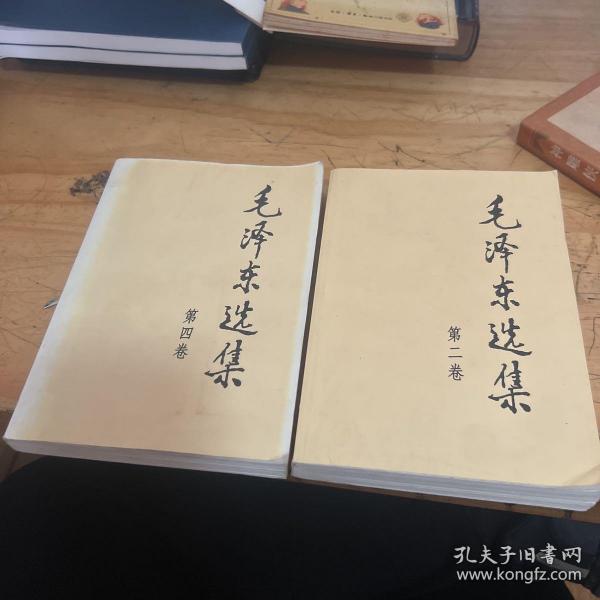 毛泽东选集
第四卷
毛泽东选集
第二卷
孔夫子旧書网
www.kongfz.com